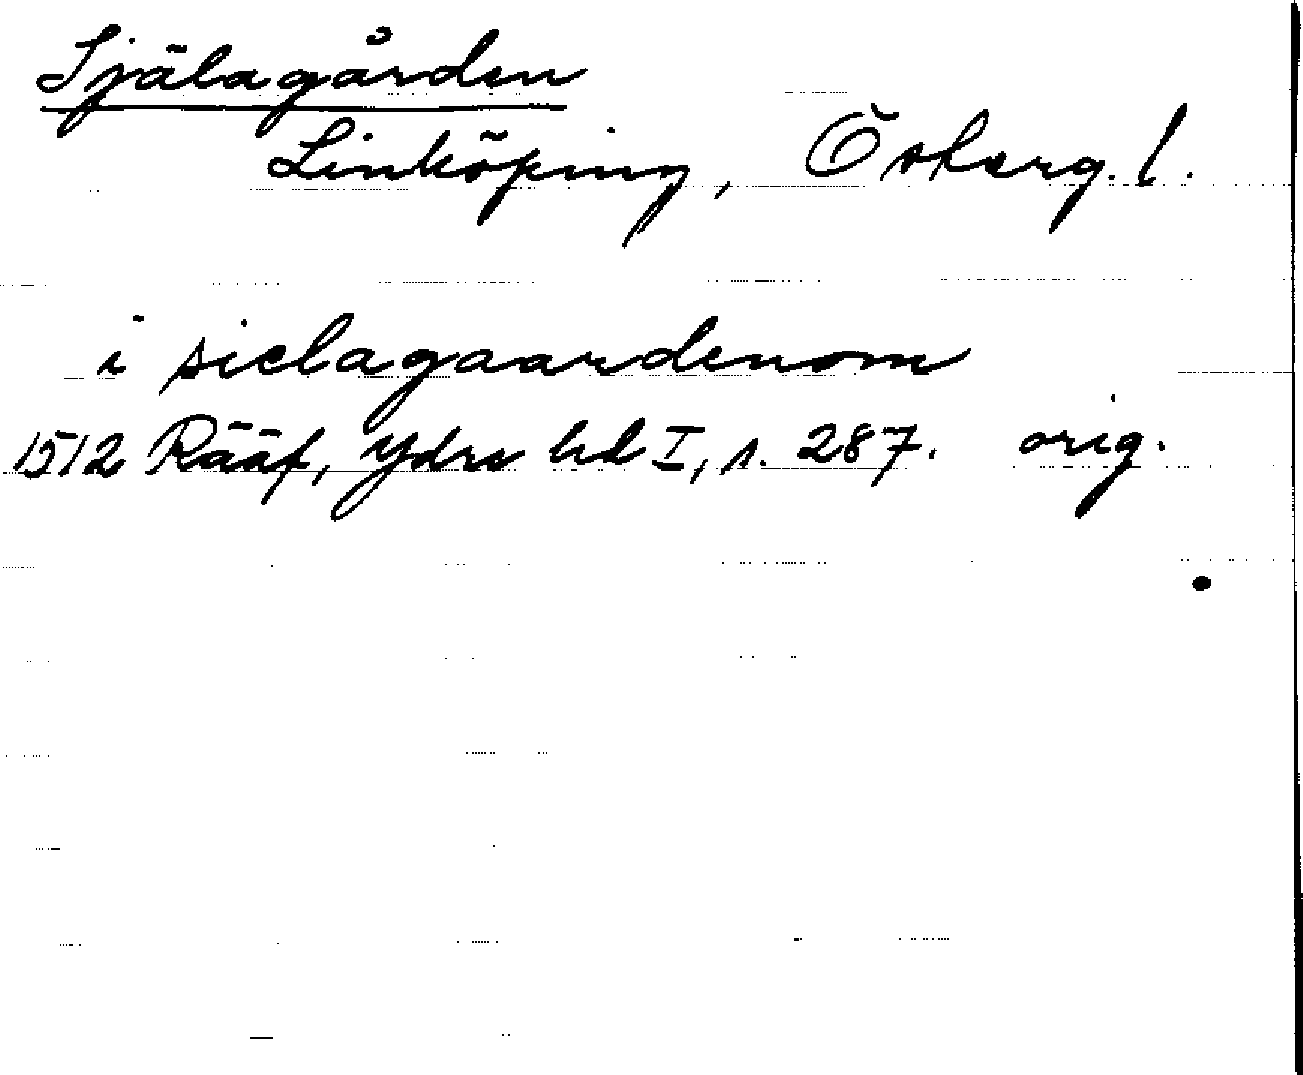 Själagården
Linköping, Österg. l.
i sielagaardenom
1512 Rääf, Ydre hd I, s. 287. orig.